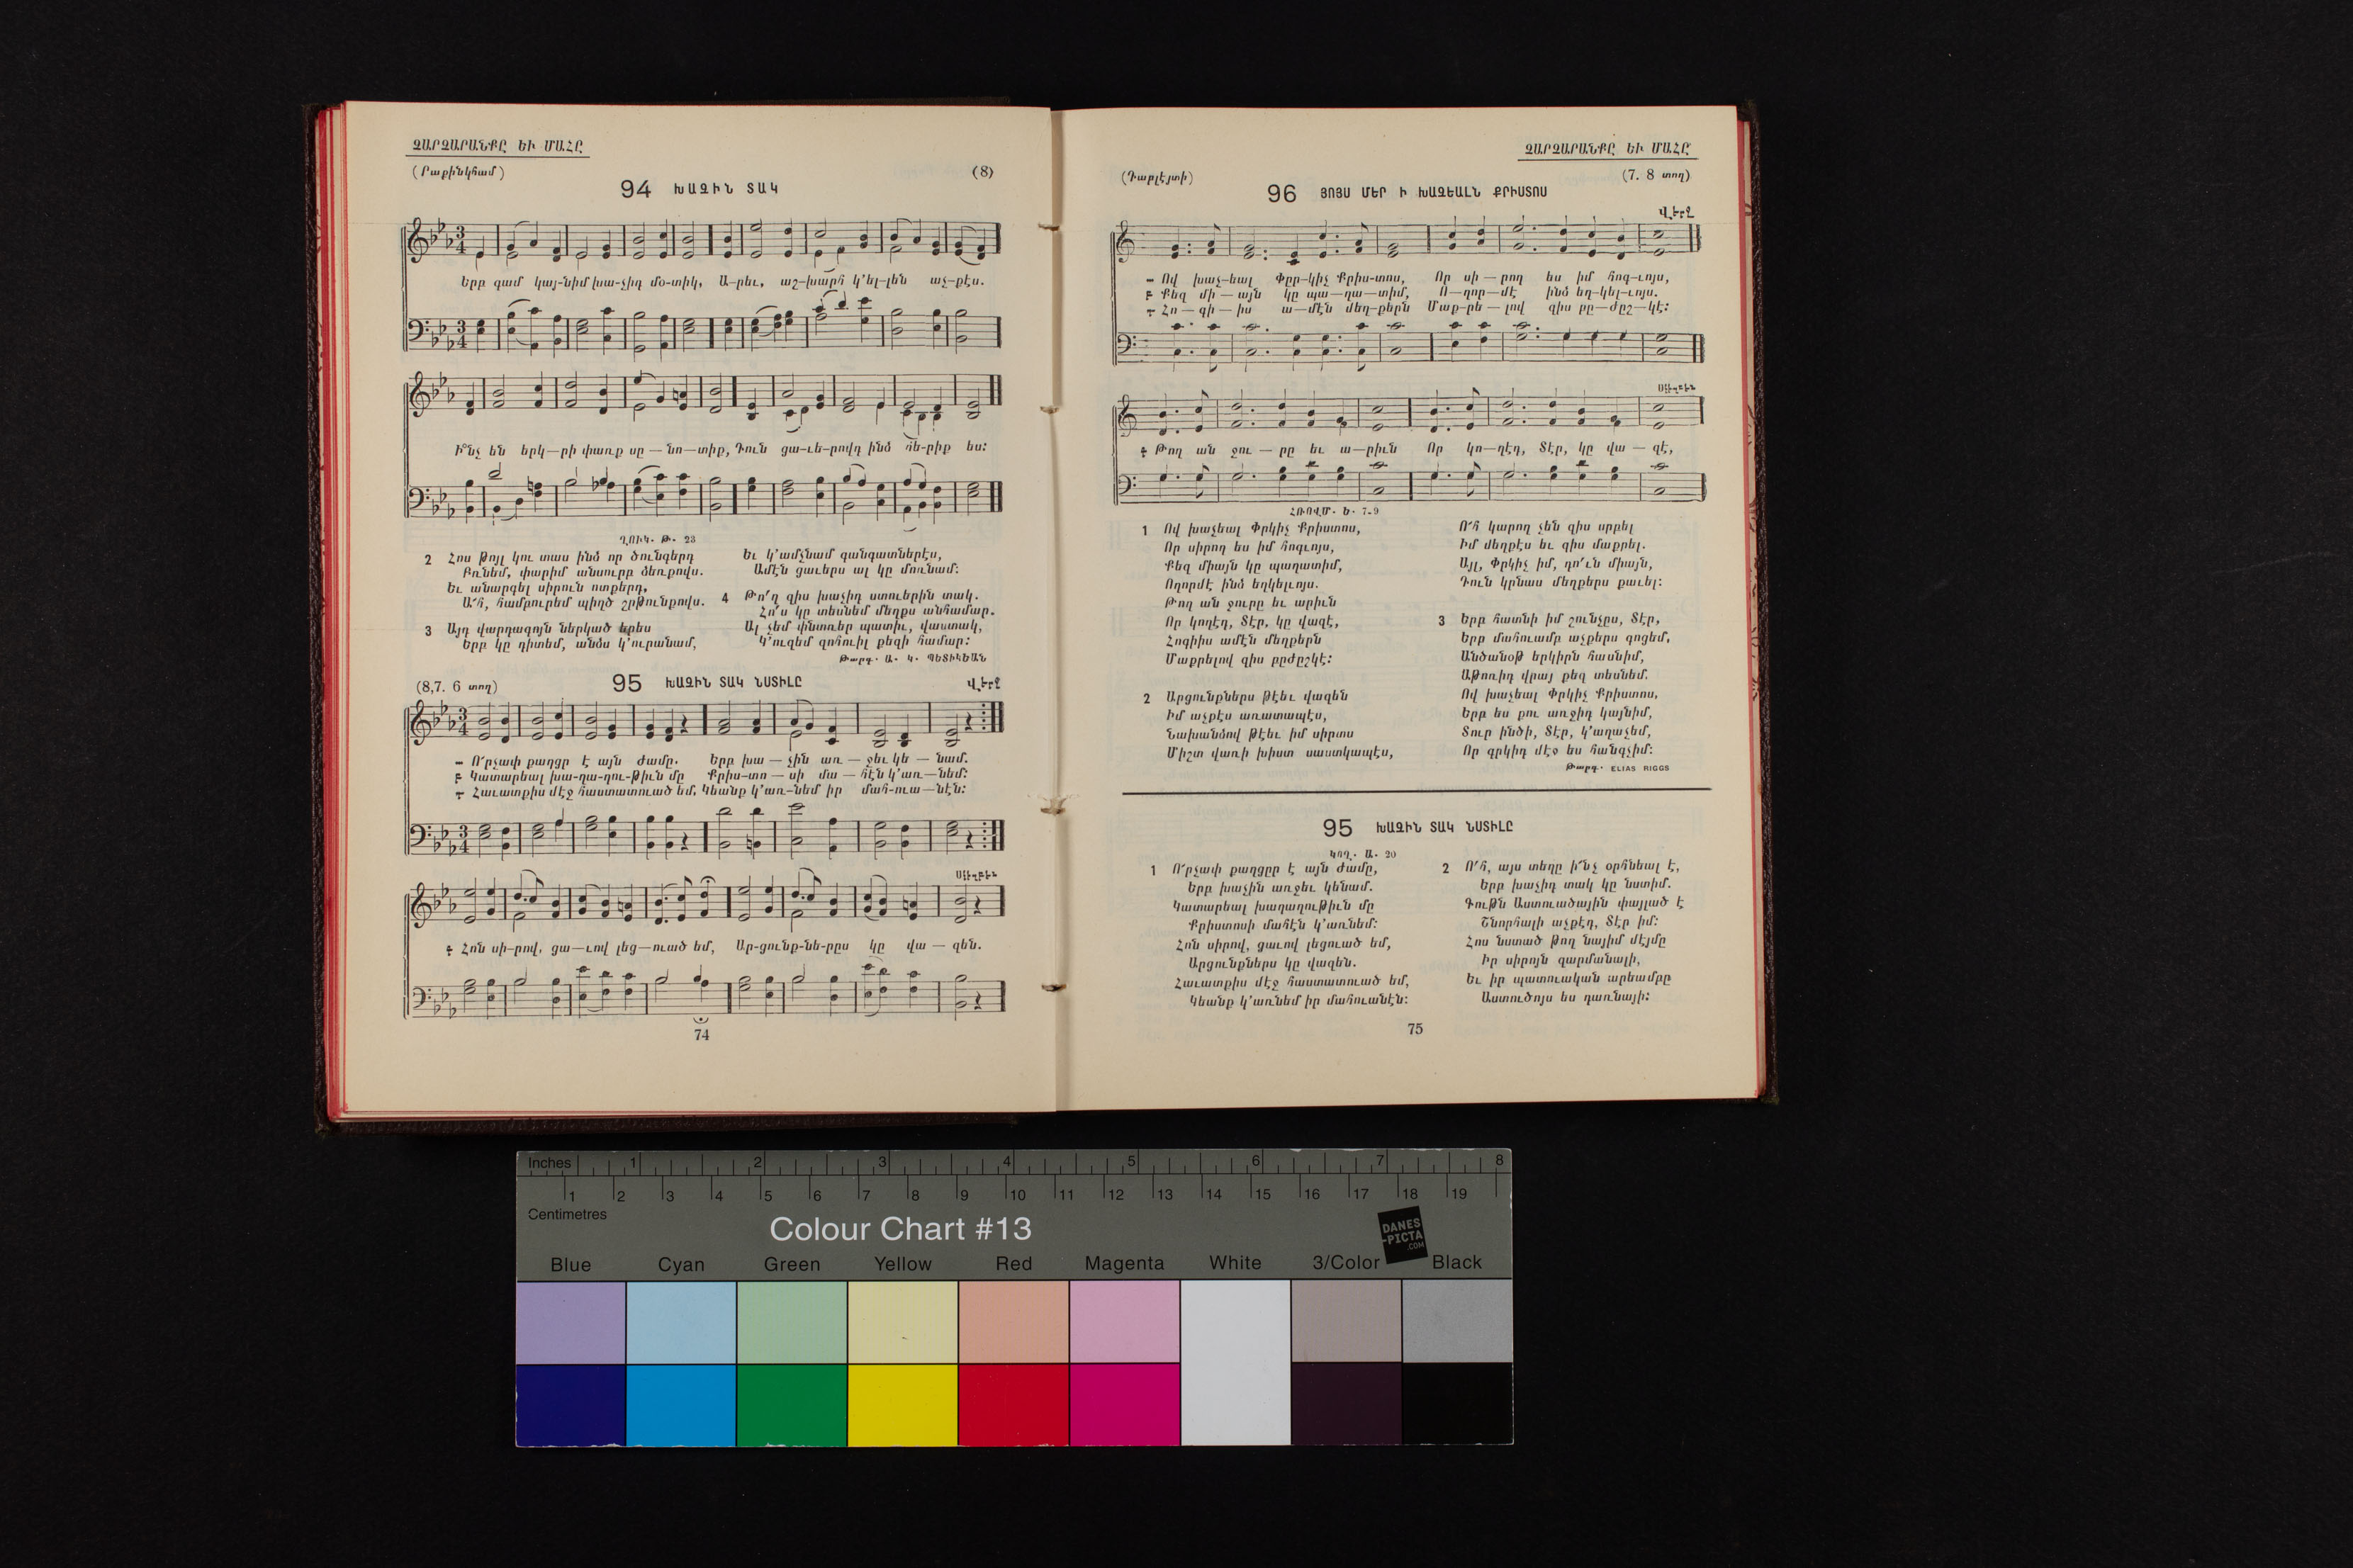 ՉԱՐՉԱՐԱՆՔԸ ԵՒ ՄԱՀԸ
(Րաքինկհամ)
(8)
94 ԽԱՉԻՆ ՏԱԿ
Երբ գամ կայ-նիմ խա-չիդ մօ-տիկ, Ա-րեւ, աշ-խարհ կ'ել-լեն աչ-քէս.
Ի՞նչ են երկ-րի փառք սը - նո-տիք, Դուն ցա-ւե-րովդ ինձ հե-րիք ես:
ՂՈՒԿ. Թ. 23
2 Հոս թոյլ կու տաս ինձ որ ծունգերդ
Բռնեմ, փարիմ անսուրբ ձեռքովս.
Եւ անարգել սիրուն ոտքերդ,
Ա՜հ, համբուրեմ պիղծ շրթունքովս.
3 Այդ վարդագոյն ներկած երես
Երբ կը դիտեմ, անձս կ'ուրանամ,
Եւ կ'ամչնամ գանգատներէս,
Ամէն ցաւերս ալ կը մոռնամ:
4 Թո՛ղ զիս խաչիդ ստուերին տակ.
Հո՛ս կը տեսնեմ մեղքս անհամար.
Ալ չեմ փնտռեր պատիւ, վաստակ,
Կ'ուզեմ զոհուիլ քեզի համար:
Թարգ. Ա. Կ. ՊԵՏԻԿԵԱՆ
(8,7. 6 տող)
95 ԽԱՉԻՆ ՏԱԿ ՆՍՏԻԼԸ
Վերջ
Ո՜րչափ քաղցր է այն ժամը. Երբ խա - չին առ - ջեւ կե - նամ.
Կատարեալ խա-ղա-ղու-թիւն մը Քրիս-տո - սի մա - հէն կ'առ-նեմ:
Հաւատքիս մէջ հաստատուած եմ, Կեանք կ'առ-նեմ իր մահ-ուա-նէն:
Սկիզբէն
Հոն սի-րով, ցա-ւով լեց-ուած եմ, Ար-ցունք-նե-րըս կը վա - զեն.
74
ՉԱՐՉԱՐԱՆՔԸ ԵՒ ՄԱՀԸ
(Դաբլէյտի)
(7. 8 տող)
96 ՅՈՅՍ ՄԵՐ Ի ԽԱՉԵԱԼՆ ՔՐԻՍՏՈՍ
Վերջ
Ով խաչ-եալ Փըր-կիչ Քրիս-տոս, Որ սի - րող ես իմ հոգ-ւոյս,
Քեզ մի - այն կը պա-ղա-տիմ, Ո-ղոր-մէ ինձ եղ-կել-ւոյս.
Հո-գի-իս ա-մէն մեղ-քերն Մաք-րե-լով զիս բը-ժըշ-կէ:
Սկիզբէն
Թող ան ջու - րը եւ ա-րիւն Որ կո-ղէդ, Տէր, կը վա - զէ,
ՀՌՈՎՄ. Ե. 7-9
1 Ով խաչեալ Փրկիչ Քրիստոս,
Որ սիրող ես իմ հոգւոյս,
Քեզ միայն կը պաղատիմ,
Ողորմէ ինձ եղկելւոյս.
Թող ան ջուրը եւ արիւն
Որ կողէդ, Տէր, կը վազէ,
Հոգիիս ամէն մեղքերն
Մաքրելով զիս բըժըշկէ:
2 Արցունքներս թէեւ վազեն
Իմ աչքէս առատապէս,
Նախանձով թէեւ իմ սիրտս
Միշտ վառի խիստ սաստկապէս,
Ո՜հ կարող չեն զիս սրբել
Իմ մեղքէս եւ զիս մաքրել.
Այլ, Փրկիչ իմ, դո՛ւն միայն,
Դուն կրնաս մեղքերս քաւել:
3 Երբ հատնի իմ շունչըս, Տէր,
Երբ մահուամբ աչքերս գոցեմ,
Անծանօթ երկիրն հասնիմ,
Աթոռիդ վրայ քեզ տեսնեմ.
Ով խաչեալ Փրկիչ Քրիստոս,
Երբ ես քու առջիդ կայնիմ,
Տուր ինծի, Տէր, կ'աղաչեմ,
Որ գրկիդ մէջ ես հանգչիմ:
Թարգ. ELIAS RIGGS
95 ԽԱՉԻՆ ՏԱԿ ՆՍՏԻԼԸ
ԿՈՂ. Ա. 20
1 Ո՜րչափ քաղցըր է այն ժամը,
Երբ խաչին առջեւ կենամ.
Կատարեալ խաղաղութիւն մը
Քրիստոսի մահէն կ'առնեմ:
Հոն սիրով, ցաւով լեցուած եմ,
Արցունքներս կը վազեն.
Հաւատքիս մէջ հաստատուած եմ,
Կեանք կ'առնեմ իր մահուանէն:
2 Ո՜հ, այս տեղը ի՜նչ օրհնեալ է,
Երբ խաչիդ տակ կը նստիմ.
Գութն Աստուածային փայլած է
Շնորհալի աչքէդ, Տէր իմ:
Հոս նստած թող նայիմ մէյմը
Իր սիրոյն զարմանալի,
Եւ իր պատուական արեամբը
Աստուծոյս ես դառնայի:
75
Inches 1 2 3 4 5 6 7 8
1 2 3 4 5 6 7 8 9 10 11 12 13 14 15 16 17 18 19
Centimetres
Colour Chart #13
DANES
-PICTA
.COM
Blue Cyan Green Yellow Red Magenta White 3/Color Black